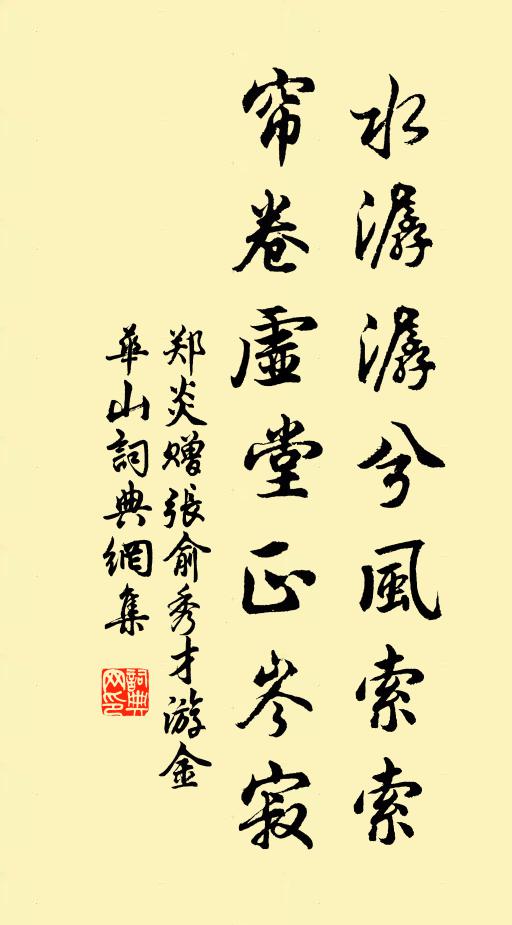 水潺潺兮風索索
帘卷虛堂正岑寂
郑炎赠張俞秀才游金
華山詞典網集
詞典网印